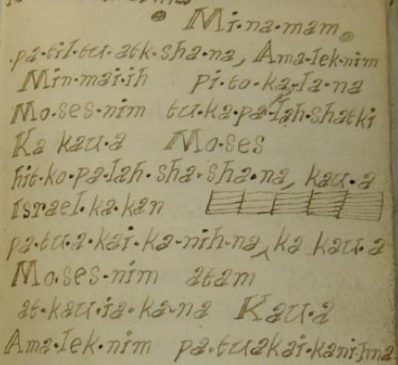 Mi·na·mam
pa·til·tu·atk·sha·na, Ama·lek·nim
Min·mai·ih pi·to·ka·la·na
Mo·ses·nim tu·ka·pa·lah·shatki
Ka kau·a Mo·ses
hit·ko·pa·lah·sha·sha·na, kau·a
Israel·ka·kan
pa·tu·a·kai·ka·nih·na, ka kau·a
Mo·ses·nim atam
at·kau·ia·ka·na Kau·a
Ama·lek·nim pa·tuakai·kanihna